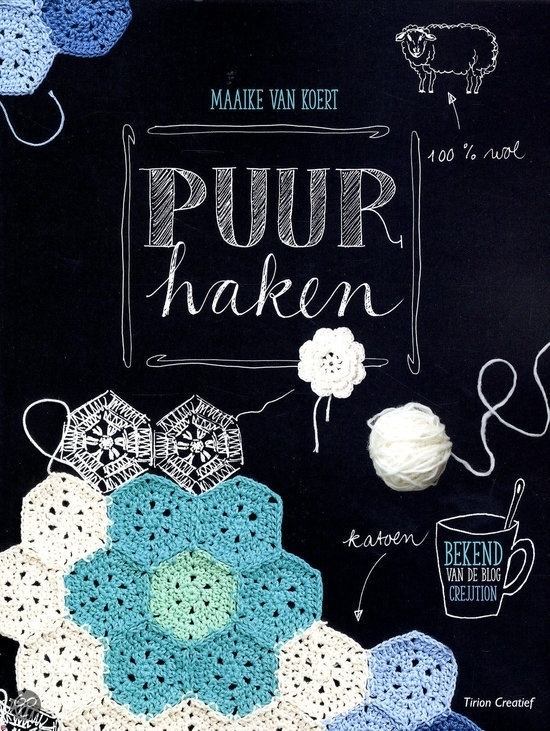 MAAIKE VAN KOERT
100% wol
PUUR
haken
katoen
BEKEND
VAN DE BLOG
CREJJTION
Tirion Creatief